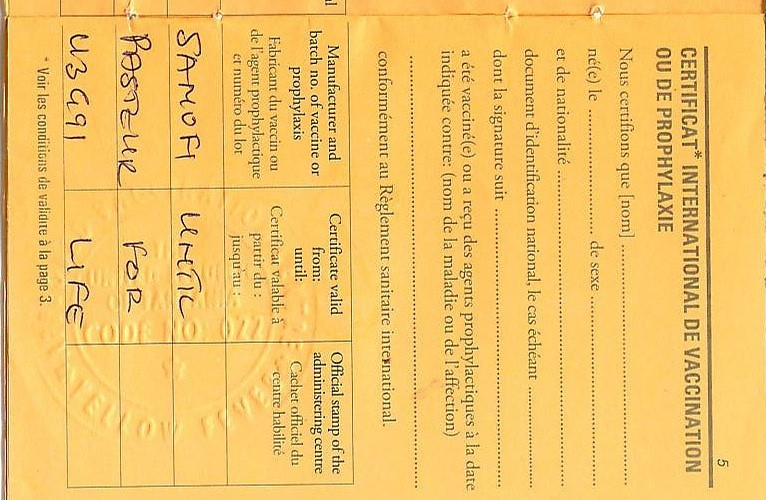 5
CERTIFICAT* INTERNATIONAL DE VACCINATION
OU DE PROPHYLAXIE
Nous certifions que [nom]
né(e) le ........ de sexe ........
et de nationalité
document d'identification national, le cas échéant
dont la signature suit
a été vacciné(e) ou a reçu des agents prophylactiques à la date
indiquée contre: (nom de la maladie ou de l'affection)
conformément au Règlement sanitaire international.
Manufacturer and
batch no. of vaccine or
prophylaxis
Fabricant du vaccin ou
de l'agent prophylactique
et numéro du lot
Certificate valid
from:
until:
Certificat valable à
partir du :
jusqu'au :
Official stamp of the
administering centre
Cachet officiel du
centre habilité
SANOFI UNTIL
PASTEUR FOR
LIFE
CODE NO
YELLOW FEVER
* Voir les conditions de validité à la page 3.